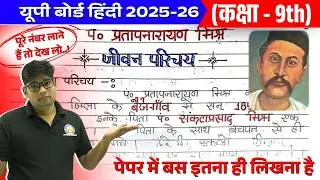 यूपी बोर्ड हिंदी 2025-26 (कक्षा - 9th)
पूरे नंबर लाने
हैं तो देख लो..!
पं० प्रतापनारायण मिश्र
जीवन परिचय
परिचय :-
पं० प्रतापनारायण मिश्र
जिला के बैजेगाँव में सन् 18
इनके पिता पं० संकटाप्रसाद मिश्र एक
पिता के साथ बचपन से ही
पेपर में बस इतना ही लिखना है